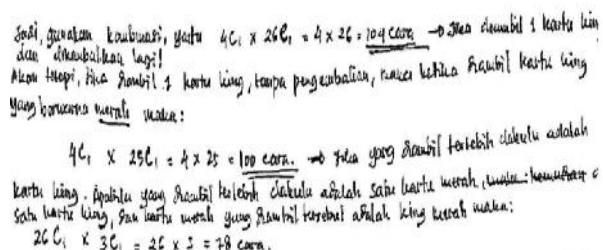 Jadi, gunakan kombinasi, yaitu 4C₁ x 26C₁ = 4 x 26 = 104 cara → Jika diambil 1 kartu king
dan dikembalikan lagi!
Akan tetapi, jika diambil 1 kartu king, tanpa pengembalian, maka ketika diambil kartu king
yang berwarna merah maka:
4C₁ x 25C₁ = 4 x 25 = 100 cara. → Jika yang diambil terlebih dahulu adalah
kartu king. Apabila yang diambil terlebih dahulu adalah satu kartu merah,
satu kartu king, dan kartu merah yang diambil tersebut adalah king merah maka:
26C₁ x 3C₁ = 26 x 3 = 78 cara.